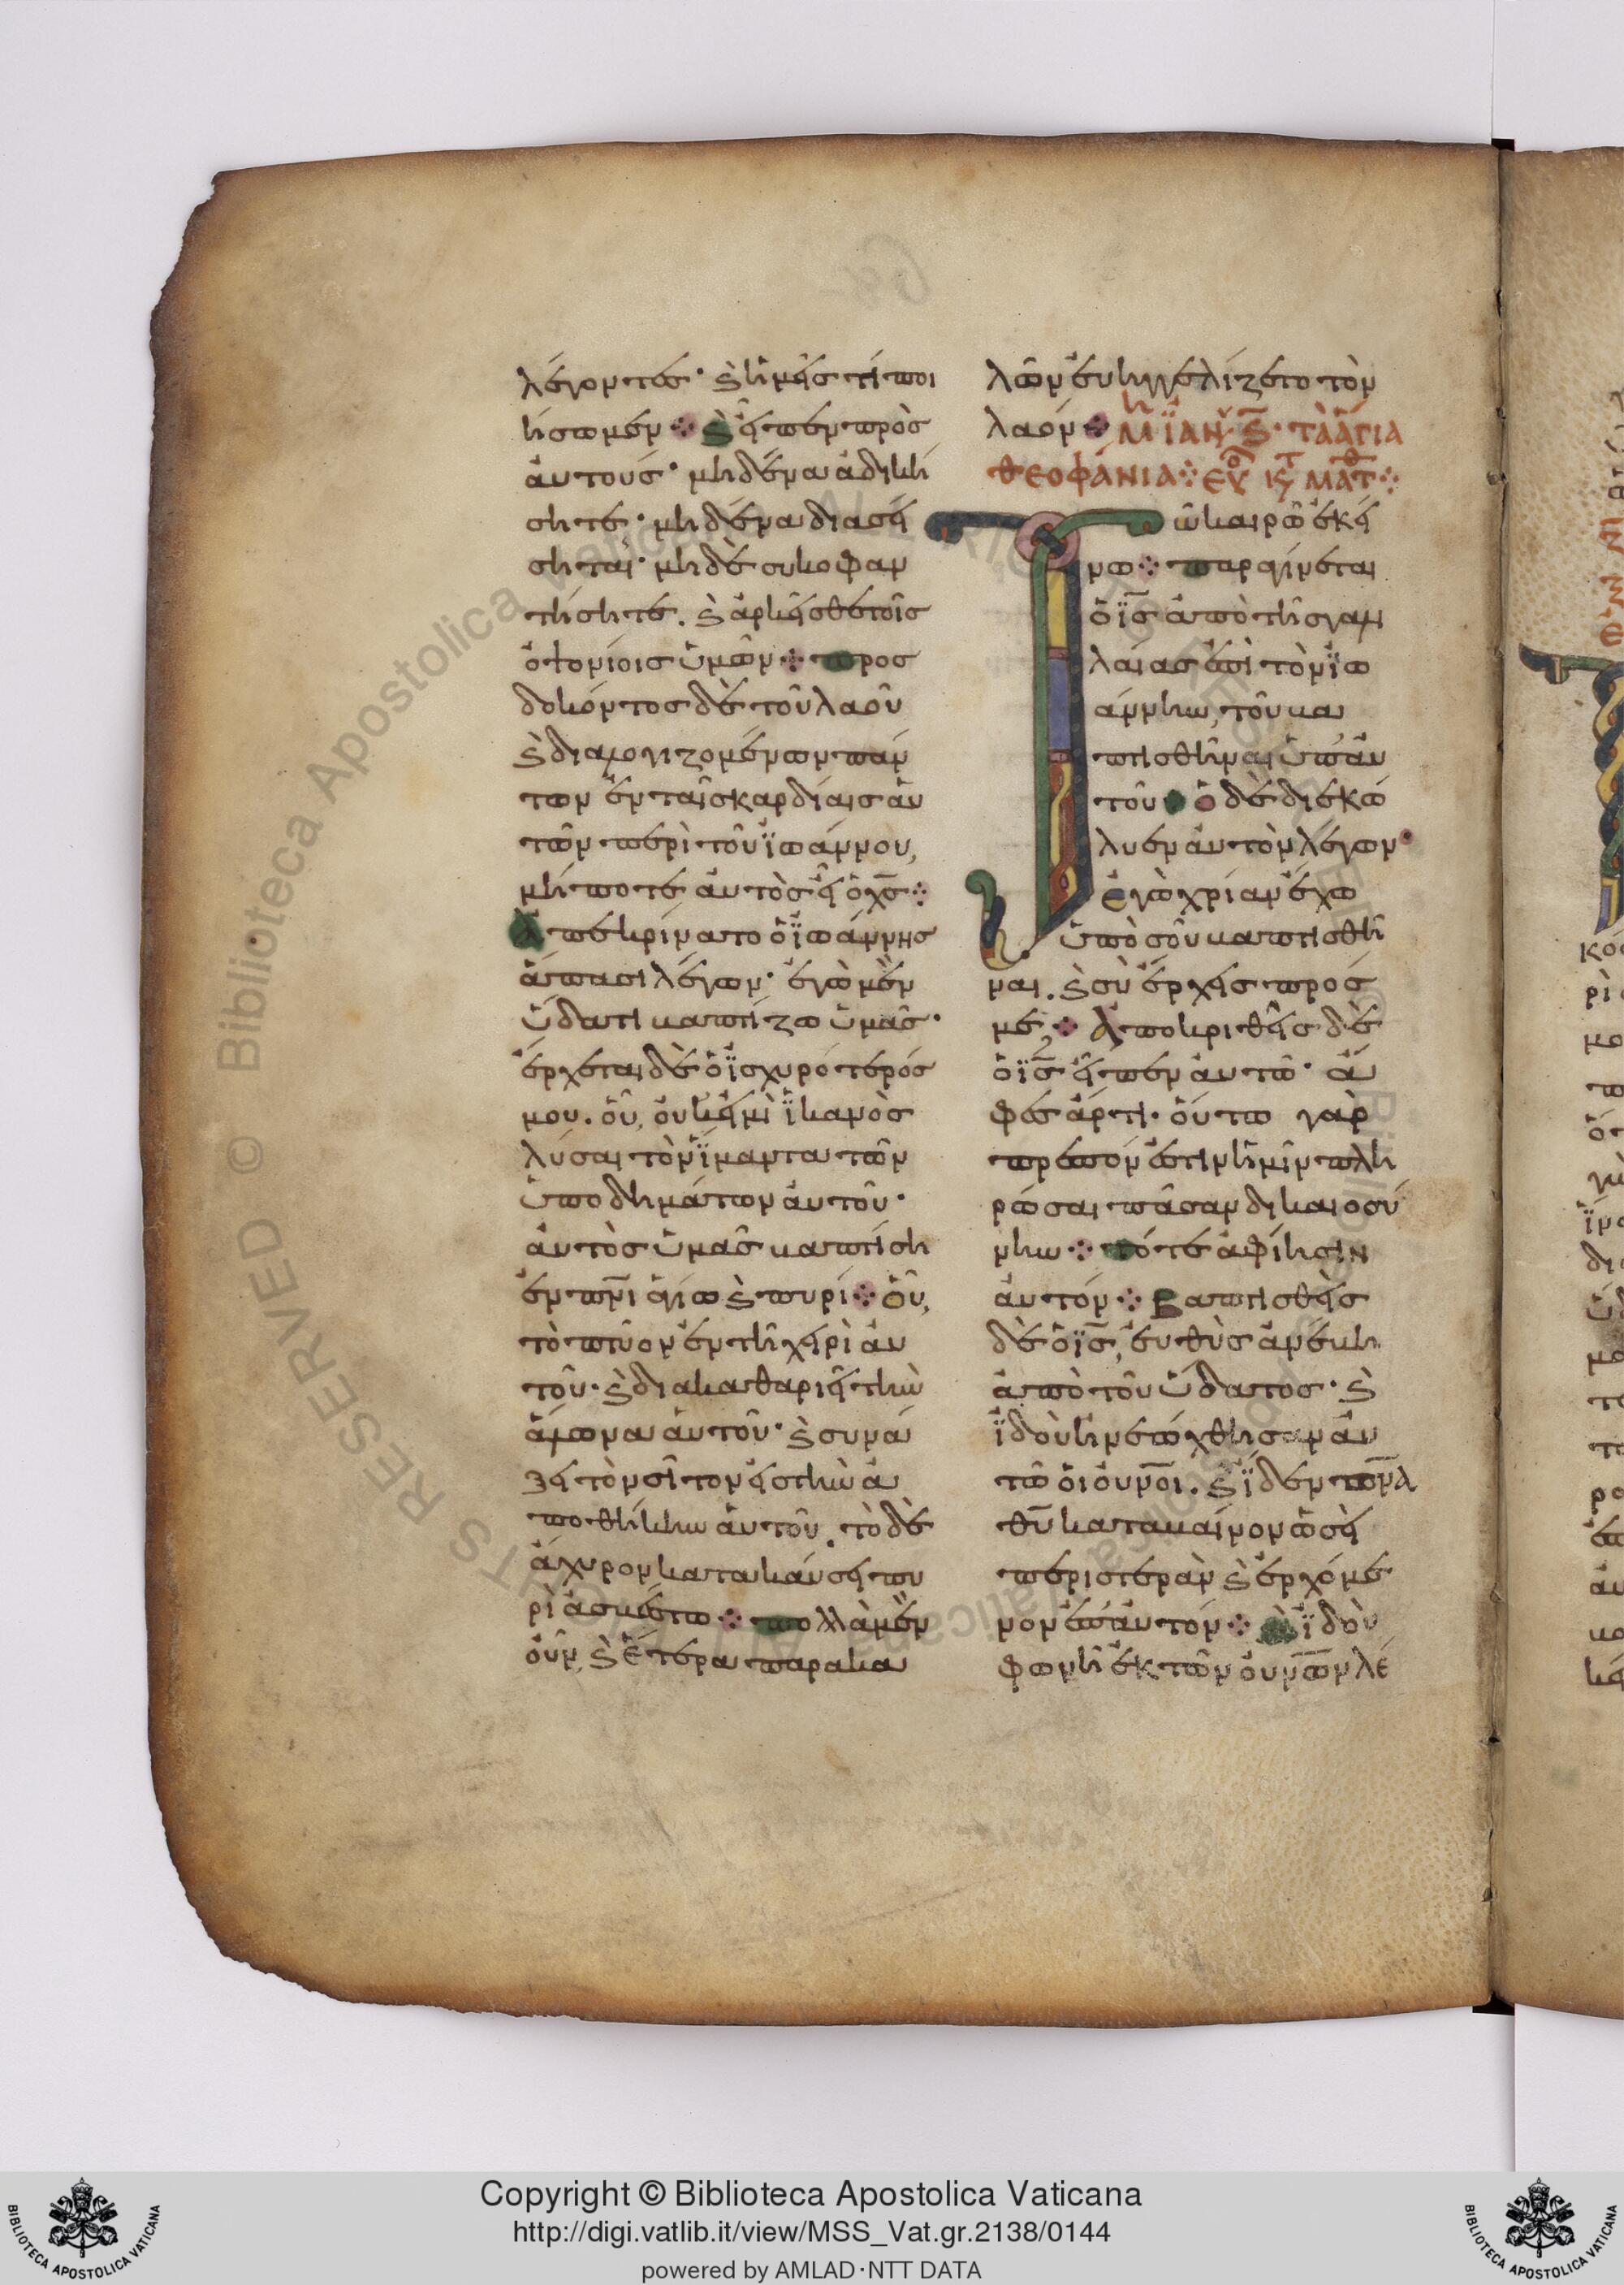 λέγοντες· ϗ ἡμεῖς τί ποι
ήσωμεν ⁘ ϗ εἶπεν πρὸς
αὐτούς· μηδένα ἀδική
σητε· μηδένα διασεί
σηται· μηδὲ συκοφαν
τήσητε. ϗ ἀρκεῖσθε τοῖς
ὀψονίοις ὑμῶν ⁘ προσ
δοκόντος δὲ τοῦ λαοῦ
ϗ διαλογιζομένων πάν
των ἐν ταῖς καρδίαις αὐ
τῶν περὶ τοῦ ἰωάννου,
μήποτε αὐτὸς εἶ ὁ χς ⁘
Ἀπεκρίνατο ὁ ἰωάννης
ἅπασι λέγων· ἐγὼ μὲν
ὕδατι βαπτίζω ὑμᾶς·
ἔρχεται δὲ ὁ ἰσχυρότερός
μου. οὗ, οὐκ εἰμὶ ἱκανὸς
λύσαι τὸν ἱμάντα τῶν
ὑποδημάτων αὐτοῦ·
αὐτὸς ὑμᾶς βαπτίση
ἐν πνι ἁγίω ϗ πυρί ⁘ οὗ,
τὸ πτύον ἐν τῆ χειρὶ αὐ
τοῦ· ϗ διακαθαριεῖ τὴν
ἅλωνα αὐτοῦ· ϗ συνά
ξει τὸν σῖτον εἰς τὴν ἀ
ποθήκην αὐτοῦ. τὸ δὲ
ἄχυρον κατακαύσει πυ
ρὶ ἀσβέστω ⁘ πολλὰ μὲν
οὖν, ϗ ἕτερα παρακα
λῶν εὐηγγελίζετο τὸν
λαόν ⁘ ΜΗ ΙΑΝ Ϛ· ΤΑ ΑΓΙΑ
ΘΕΟΦΑΝΙΑ ⁘ ΕΥ ΚΤ ΜΑΤΘ ⁘
Τῶ καιρῶ ἐκεί
νω ⁘ παραγίνεται
ὁ ις ἀπὸ τῆς γαλι
λαίας ἐπὶ τὸν ἰω
άννην, τοῦ βα
πτισθῆναι ὑπ' αὐ
τοῦ ⁘ ὁ δὲ διεκώ
λυεν αὐτὸν λέγων·
ἐγὼ χρίαν ἔχω
ὑπὸ σοῦ βαπτισθῆ
ναι. ϗ σὺ ἔρχεις πρός
με; ⁘ Ἀποκριθεὶς δὲ
ὁ ις εἶπεν αὐτῶ· ἄ
φες ἄρτι· οὕτω γὰρ
πρέπον ἐστὶν ἡμῖν πλη
ρώσαι πᾶσαν δικαιοσύ
νην ⁘ τότε ἀφίησιν
αὐτόν ⁘ Βαπτισθεὶς
δὲ ὁ ις, εὐθὺς ἀνέβη
ἀπὸ τοῦ ὕδατος· ϗ
ἰδοὺ ἠνεώχθησαν αὐ
τῶ οἱ οὐνοι. ϗ ἴδεν πνα
θυ καταβαίνον ὡσεὶ
περιστερὰν ϗ ἐρχόμε
νον ἐπ' αὐτόν ⁘ ϗ ἰδοὺ
φωνὴ ἐκ τῶν οὐνων λέ
Copyright © Biblioteca Apostolica Vaticana
http://digi.vatlib.it/view/MSS_Vat.gr.2138/0144
powered by AMLAD·NTT DATA